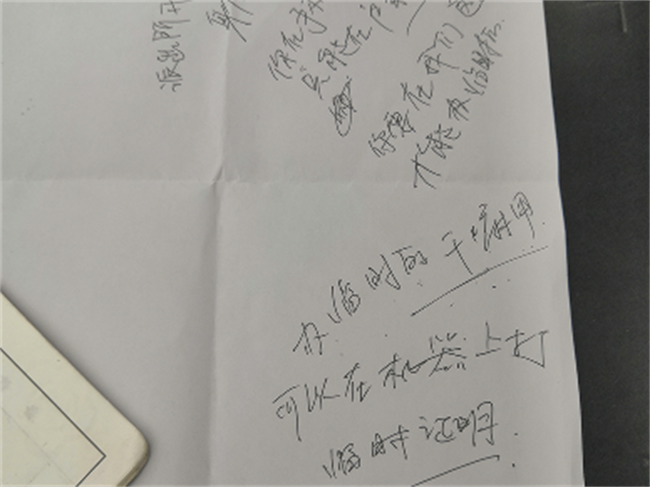 派出所开
你在
只能在户
你想在你们
才能办临时
办临时的干嘛用
可以在机器上打
临时证明